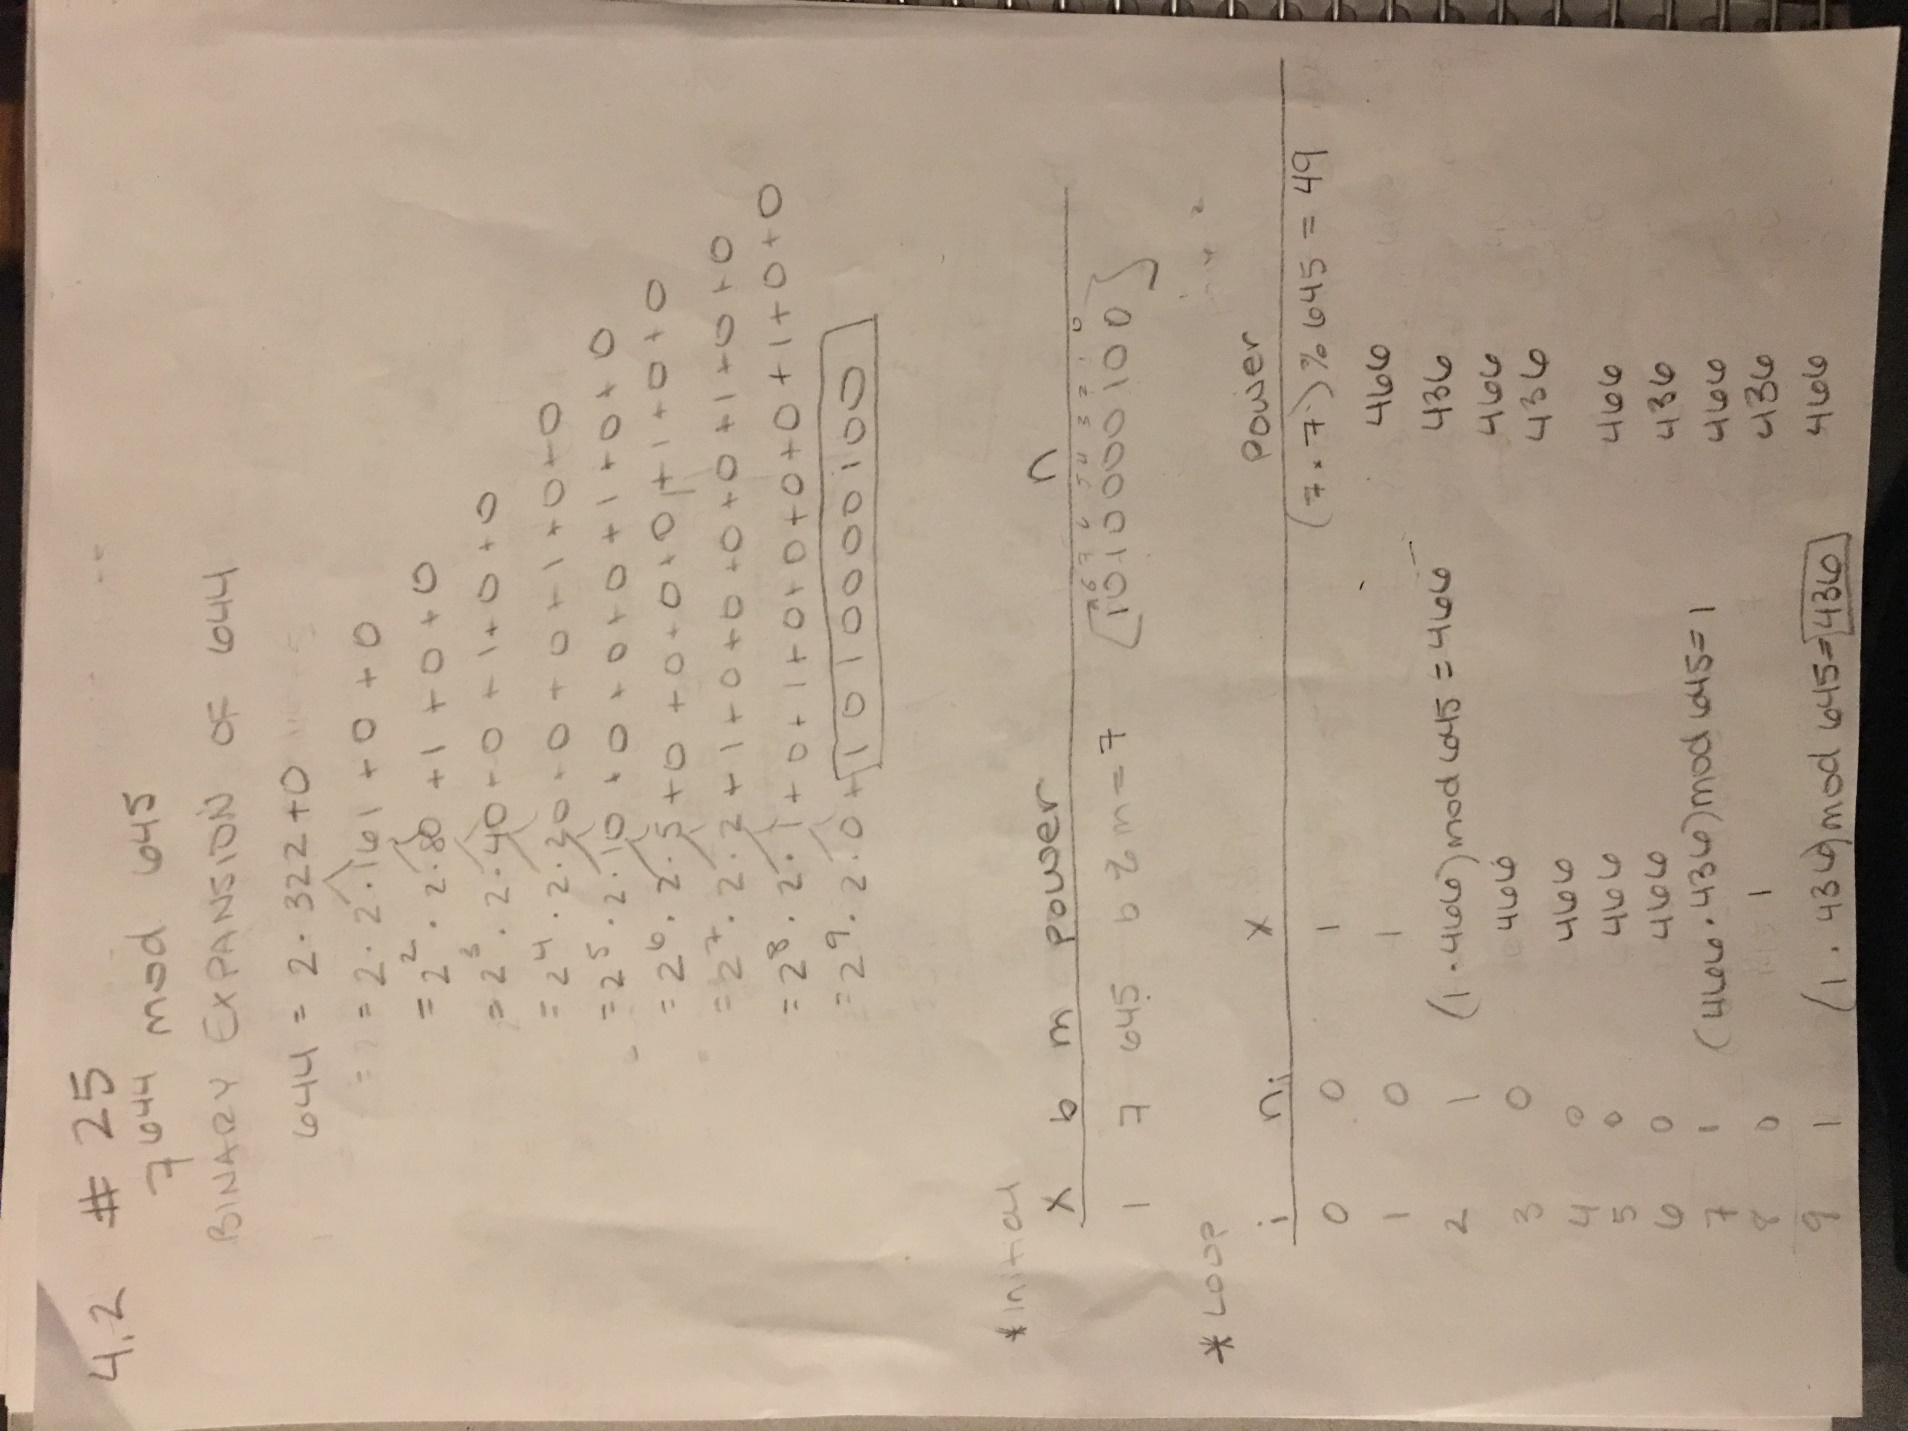 4.2 # 25
7^644 mod 645
BINARY EXPANSION OF 644
644 = 2·322+0
= 2·2·161+0+0
= 2^2·2·80+1+0+0
= 2^3·2·40+0+1+0+0
= 2^4·2·20+0+0+1+0+0
= 2^5·2·10+0+0+0+1+0+0
= 2^6·2·5+0+0+0+0+1+0+0
= 2^7·2·2+1+0+0+0+0+1+0+0
= 2^8·2·1+0+1+0+0+0+0+1+0+0
= 2^9·2·0+1010000100
* Initial
x b m power n
1 7 645 b % m = 7 (1010000100)
* LOOP
i ni x power
0 0 1 (7*7) % 645 = 49
1 0 1 466
2 1 (1·466) mod 645 = 466 436
3 0 466 466
4 0 466 436
5 0 466 466
6 0 466 436
7 1 (466·436) mod 645 = 1 466
8 0 1 436
9 1 (1·436) mod 645 = 436 466